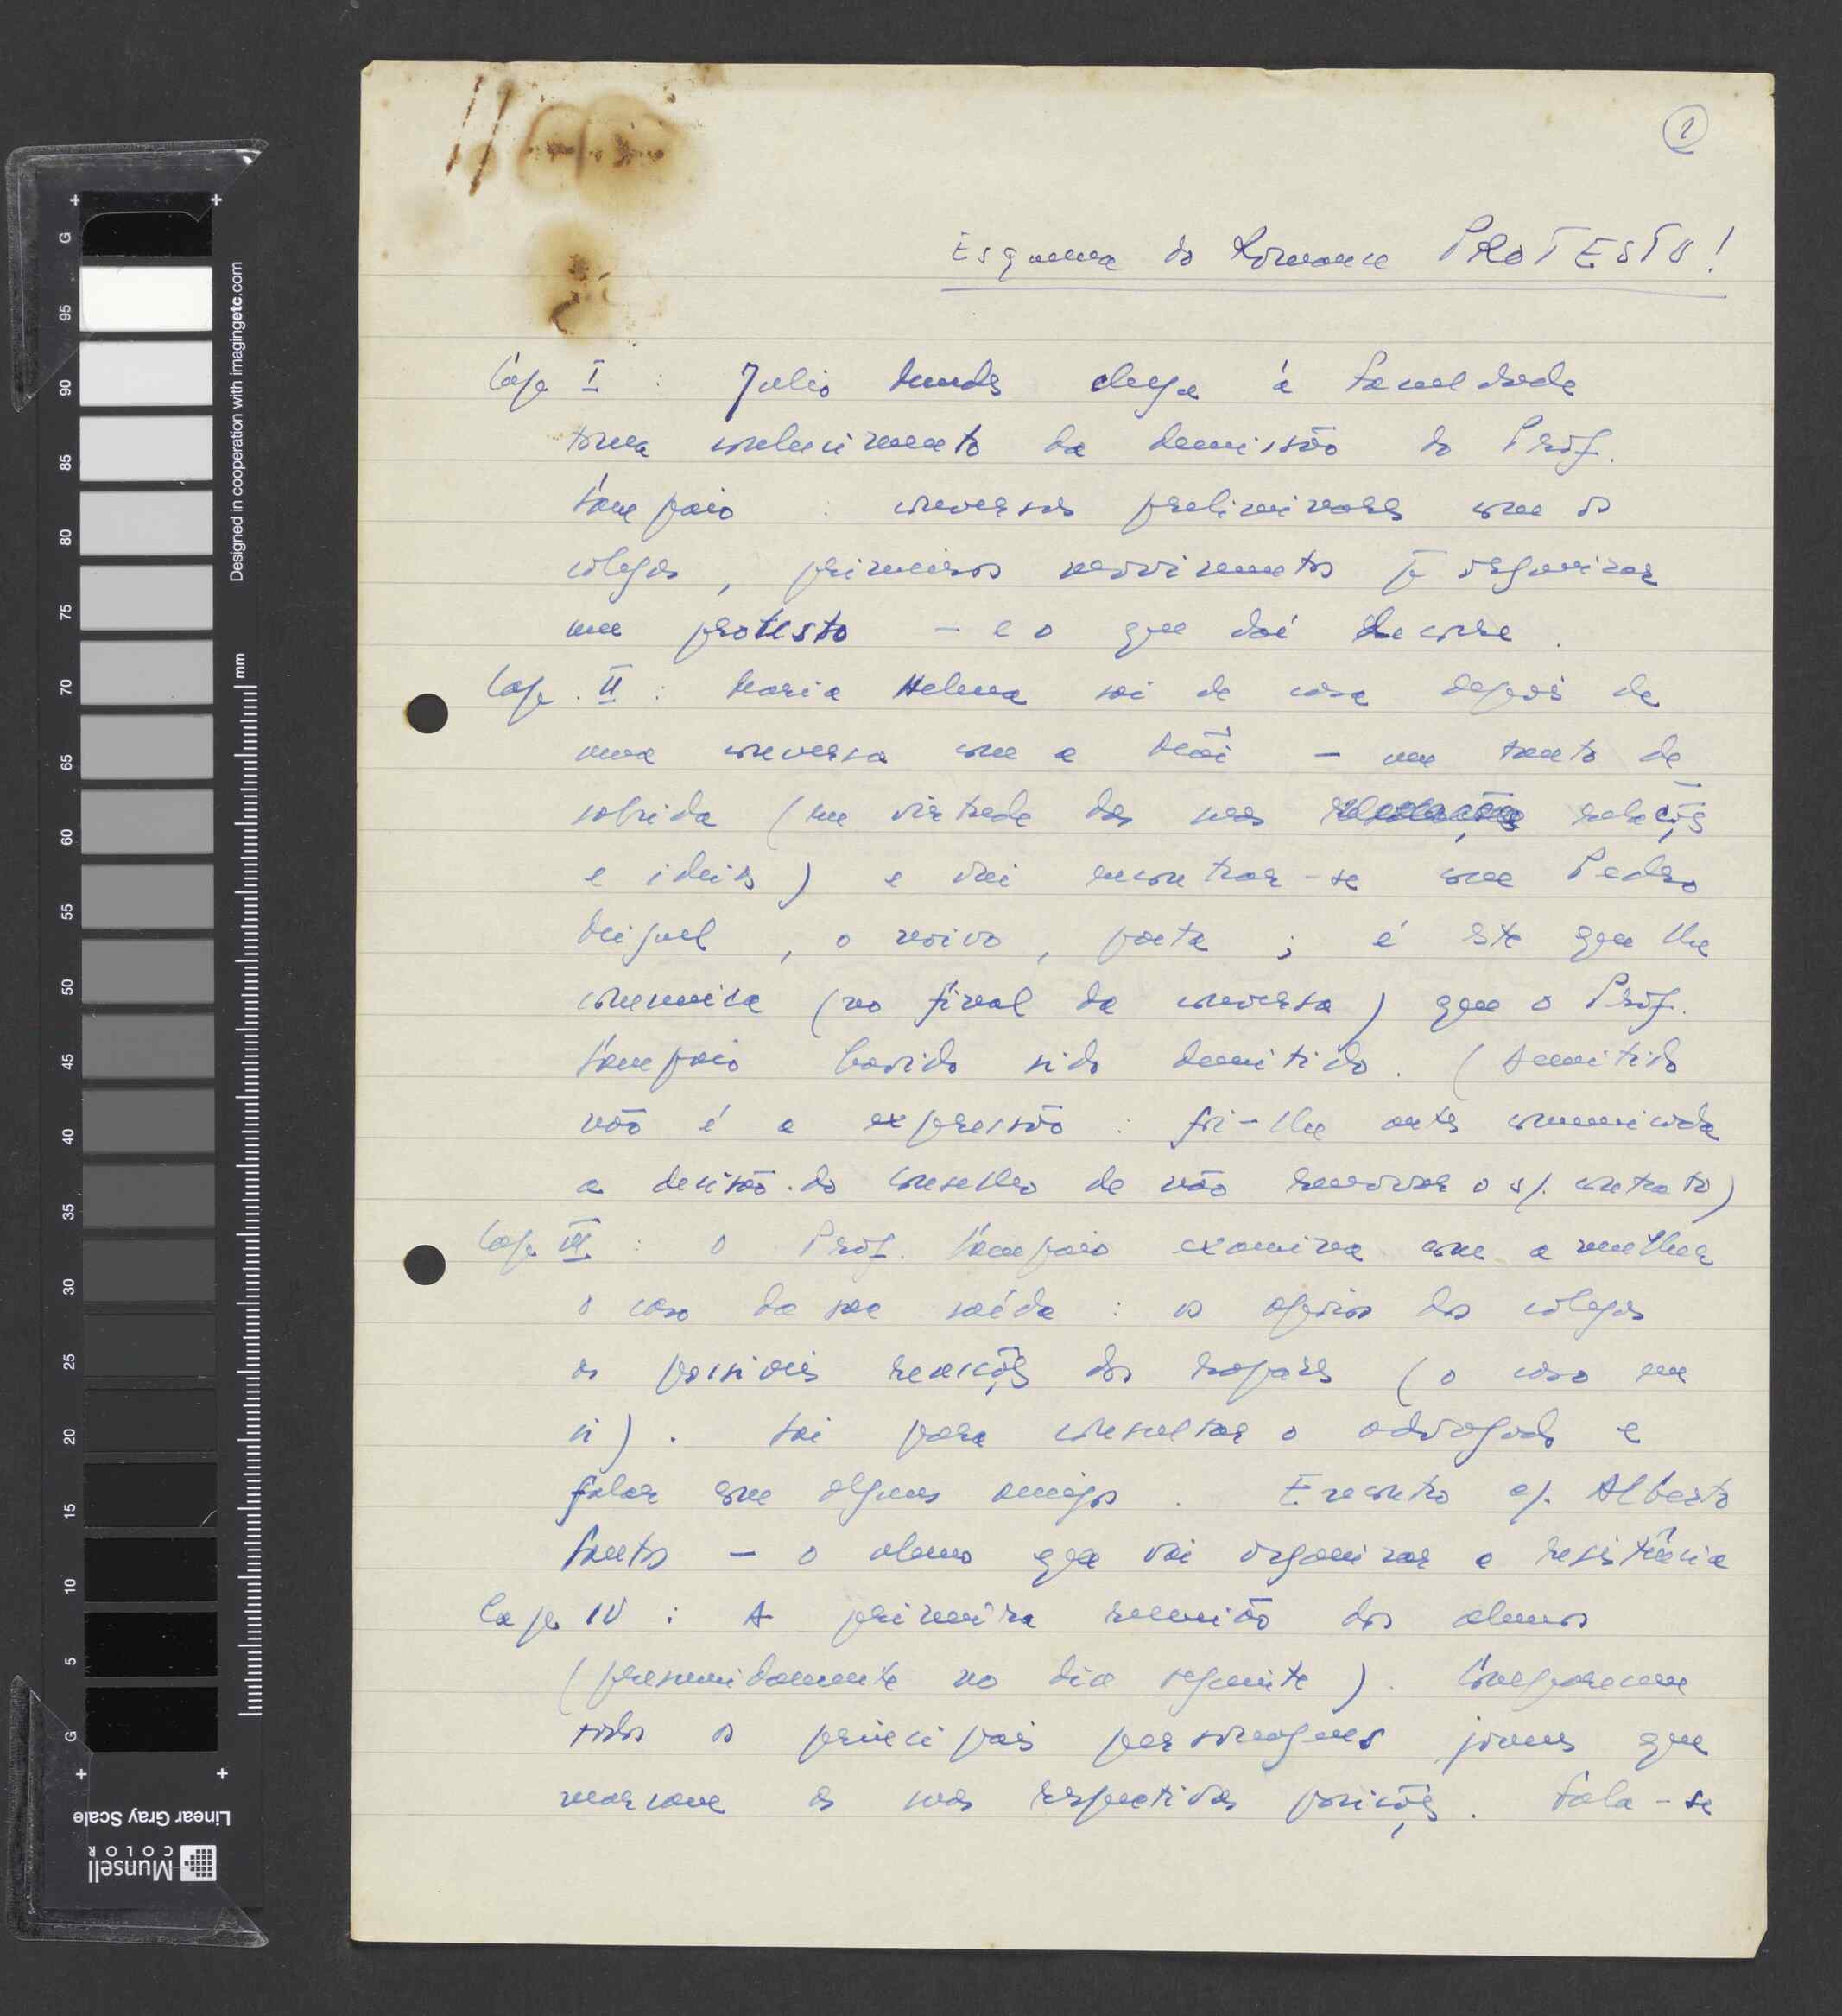 1
Esquema do Romance PROTESTO!
Cap I : Julio Mendes chega à Faculdade
toma conhecimento da demissão do Prof.
Sampaio : conversas preliminares com os
colegas, primeiros movimentos p.ª organizar
um protesto – e o que daí decorre.
Cap. II : Maria Helena sai de casa depois de
uma conversa com a Mãi – um tanto de
sabrida (em virtude das suas relações
e ideias) e vai encontrar-se com Pedro
Miguel, o noivo, poeta ; é este que lhe
comunica (no final da conversa) que o Prof.
Sampaio havido sido demitido. (Demitido
não é a expressão : foi-lhe antes comunicada
a decisão do Conselho de não renovar o s/. contrato)
Cap III : O Prof. Sampaio examina com a mulher
o caso da sua saída : os apoios dos colegas
as possíveis reacções dos rapazes (o caso em
si). Sai para consultar o advogado e
falar com alguns amigos. Encontro c/. Alberto
Santos – o aluno que vai organizar a resistência
Cap IV : A primeira reunião dos alunos
(presumidamente no dia seguinte). Comparecem
todos os principais personagens jovens que
marcam as suas respectivas posições. Fala-se
95
90
85
80
75
70
65
60
55
50
45
40
35
30
25
20
15
10
5
G
G
mm
Designed in cooperation with imagingetc.com
Linear Gray Scale
Munsell
COLOR